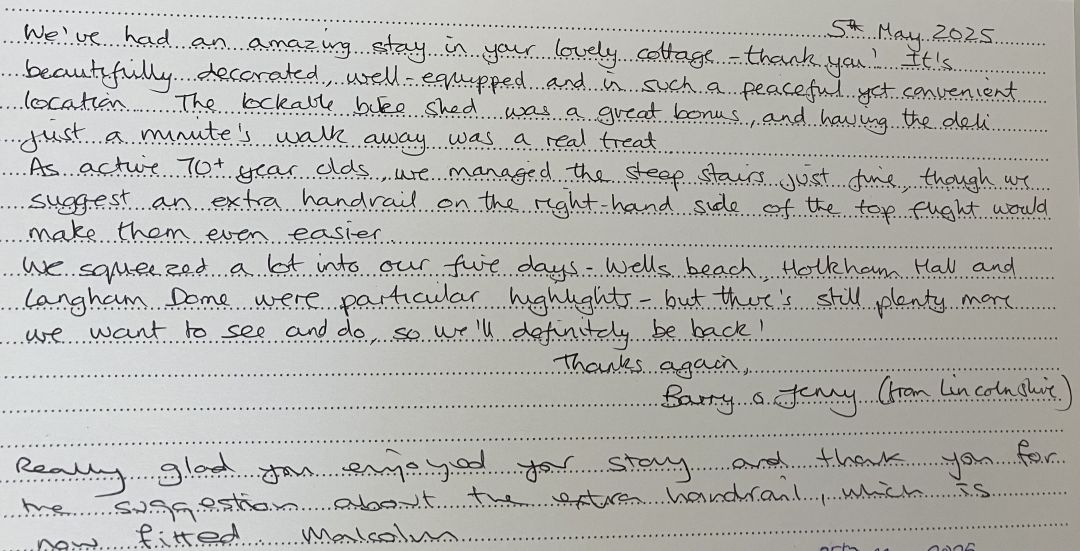 5th May 2025
We've had an amazing stay in your lovely cottage - thank you! It's
beautifully decorated, well-equipped and in such a peaceful yet convenient
location. The lockable bike shed was a great bonus, and having the deli
just a minute's walk away was a real treat
As active 70+ year olds, we managed the steep stairs just fine, though we
suggest an extra handrail on the right-hand side of the top flight would
make them even easier.
We squeezed a lot into our five days - Wells beach, Holkham Hall and
Langham Dome were particular highlights - but there's still plenty more
we want to see and do, so we'll definitely be back!
Thanks again,
Barry & Jenny (from Lincolnshire)
Really glad you enjoyed your stay and thank you for
the suggestion about the extra handrail, which is
now fitted Malcolm